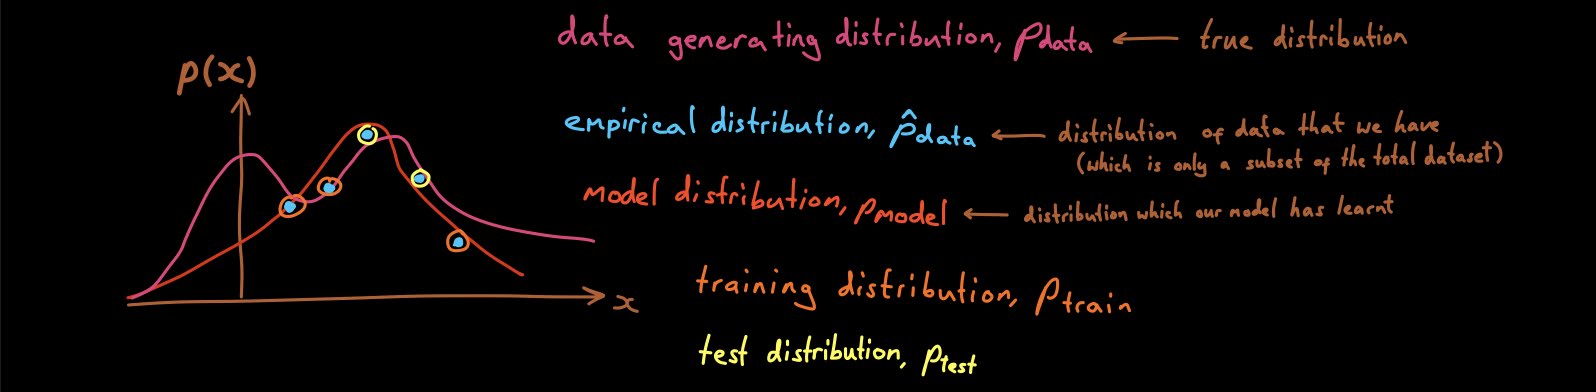 p(x)
x
data generating distribution, p_data ← true distribution
empirical distribution, p̂_data ← distribution of data that we have
(which is only a subset of the total dataset)
model distribution, p_model ← distribution which our model has learnt
training distribution, p_train
test distribution, p_test